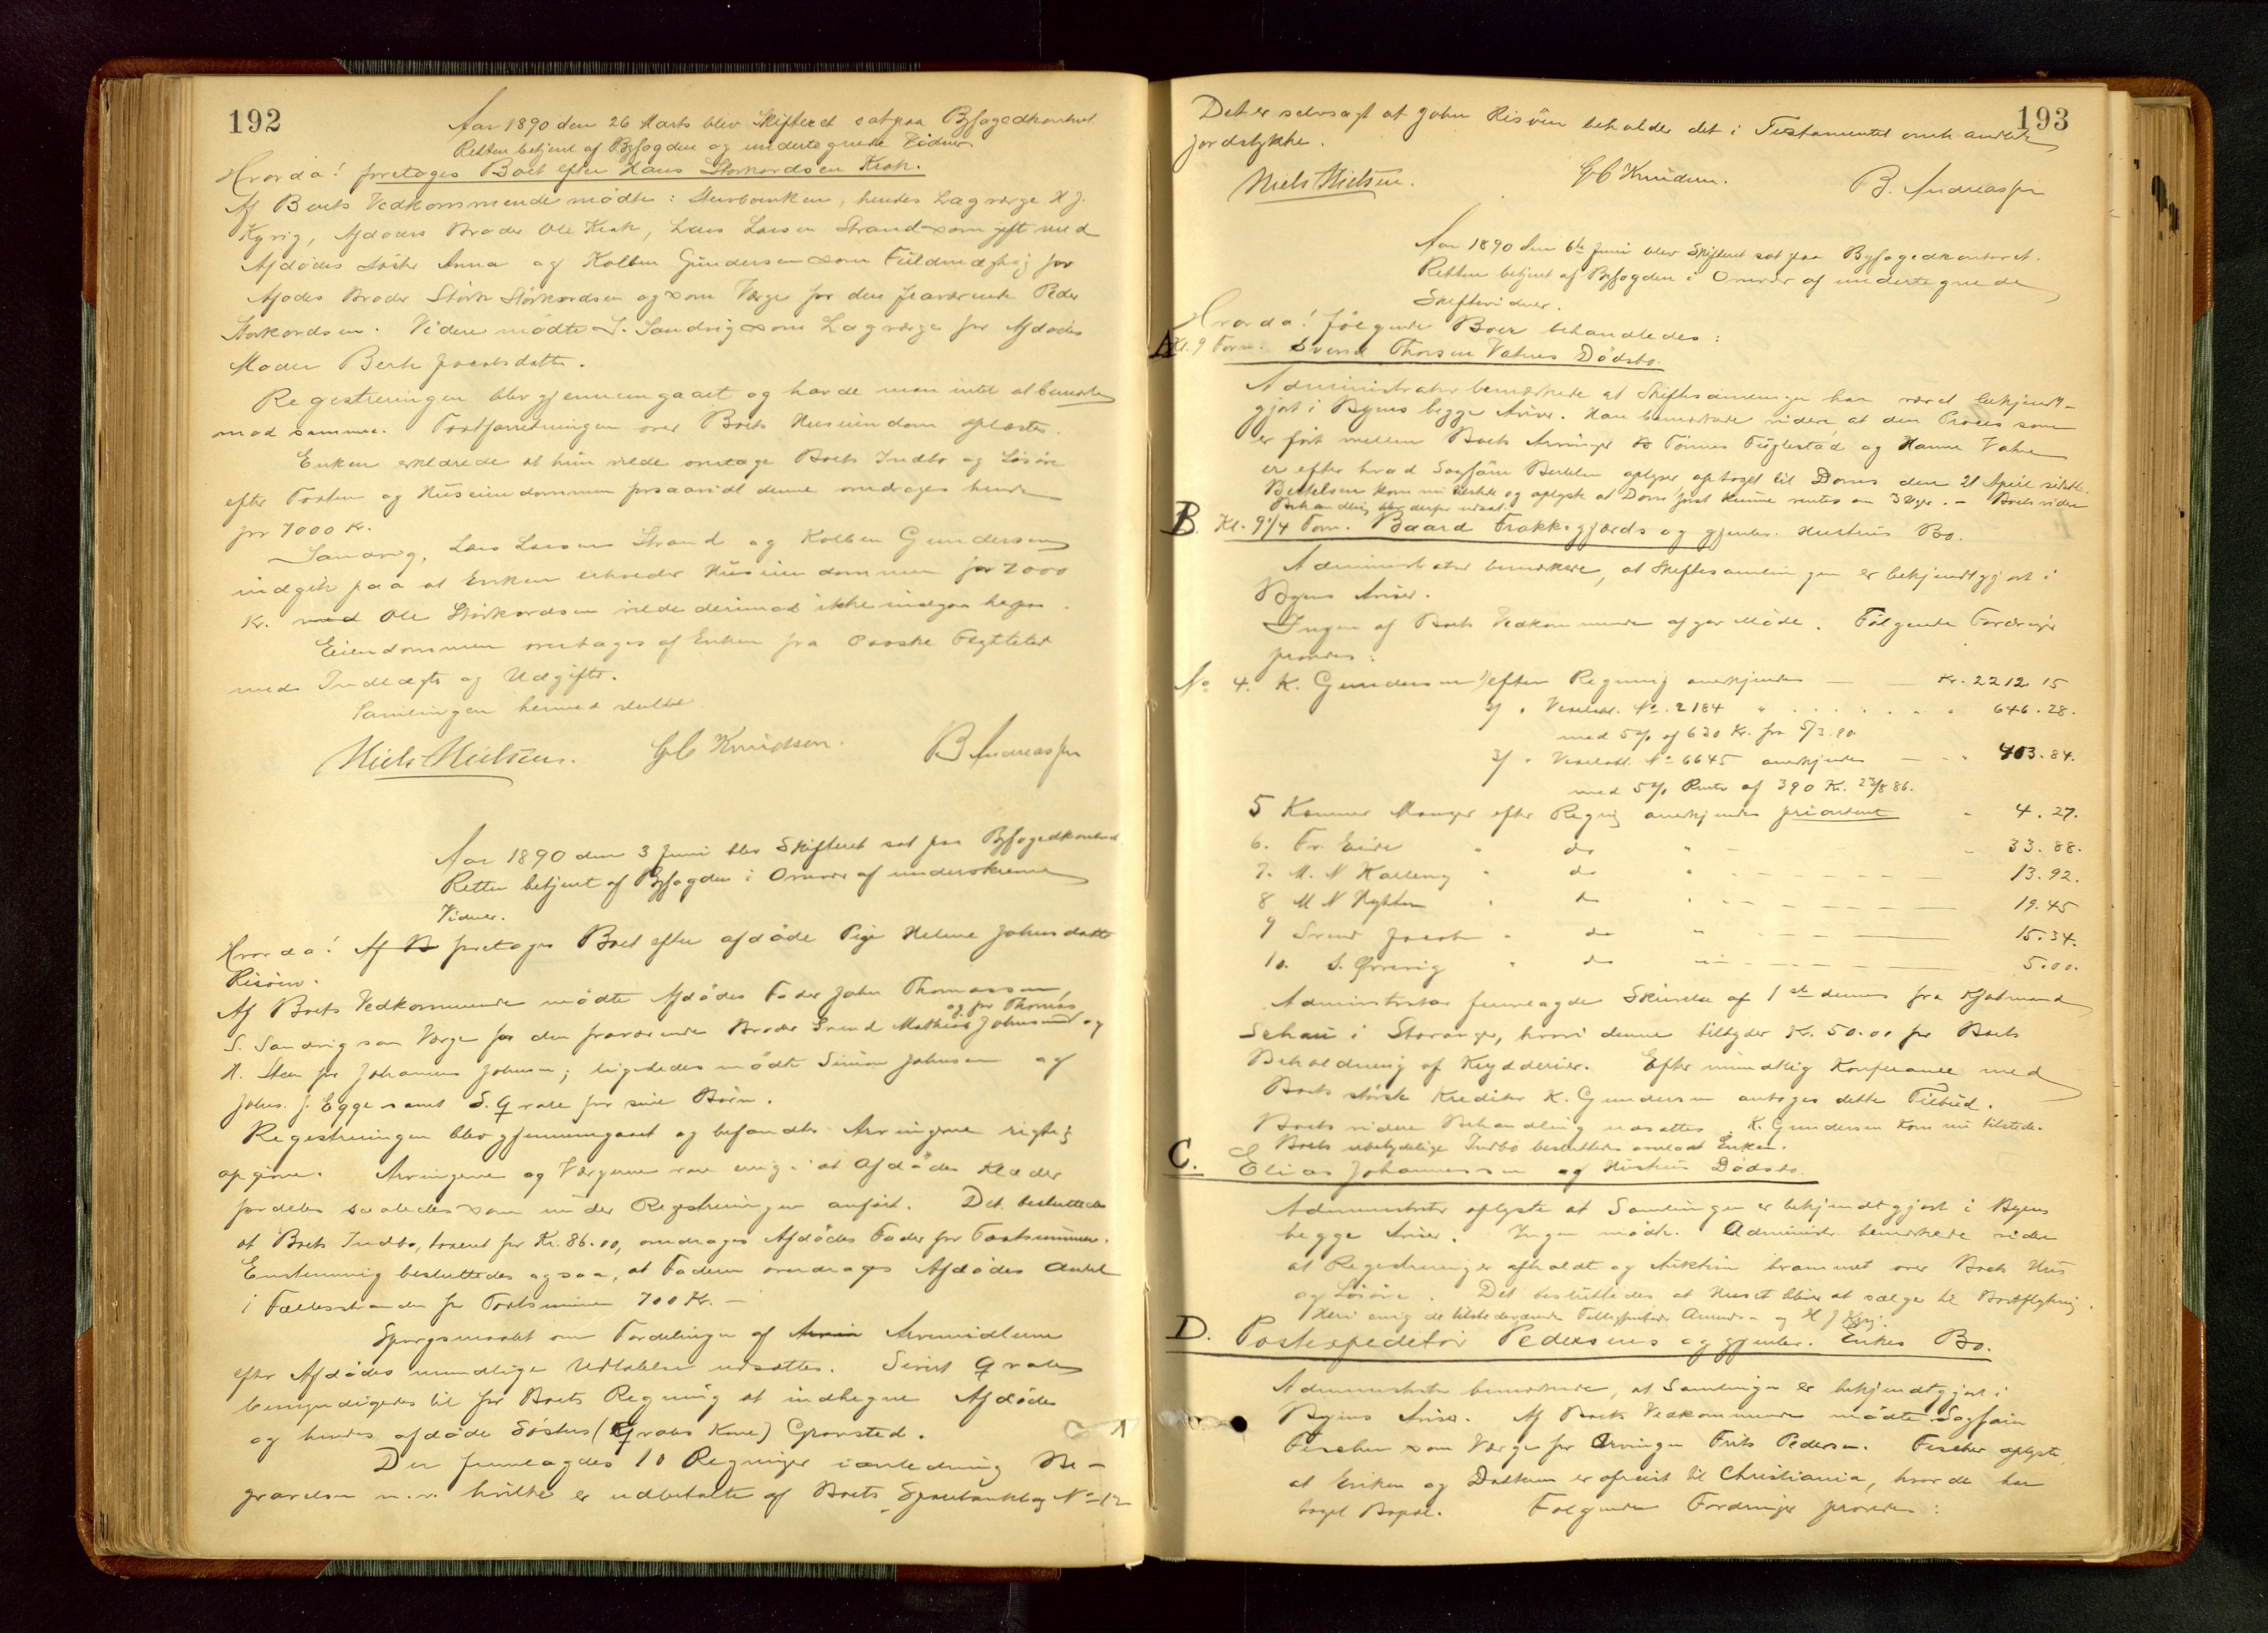 192
Aar 1890 den 26 Marts blev Skifteret sat paa Byfogedkontoret.
Retten betjent af Byfogden og undertegnede Vidner.
Hvorda! foretoges Boet efter Hans Storkordsen Krak.
Af Boets Vedkommende mødte: Stervboenken, hendes Lagværge H J.
Kyvig, Afdødes Broder Ole Krak, Lars Larsen Strand som gift med
Afdødes Søster Anna og Kolben Gundersen som Fuldmægtig for
Afdødes Broder Stork Storkordsen og som Værge for den fraværende Peder
Storkordsen. Videre mødte S. Sandvig som Lagværge for Afdødes
Moder Berte Jacobsdatter.
Registreringen blev gjennemgaaet og havde man intet at bemærke
mod samme. Taxtforretningen over Boets Huseiendom oplæstes.
Enken erklærede at hun vilde overtage Boets Indbo og Løsøre
efter Taxten og Huseiendommen forsaavidt denne overdrages hende
for 7000 Kr.
Sandvig, Lars Larsen Strand og Kolben Gundersen
indgik paa at Enken beholder Huseiendommen for 7000
Kr. Ole Storkordsen vilde derimod ikke indgaa herpaa.
Eiendommen overtages af Enken fra Paaske Flyttetid
med Indtægts og Udgifter.
Samlingen hermed sluttet.
Niels Nielsen. G C Knudsen. B Andreassen
Aar 1890 den 3 Juni blev Skifteret sat paa Byfogedkontoret.
Retten betjent af Byfogden i Overvær af underskrevne
Vidner.
Hvorda! Af B foretoges Boet efter afdøde Pige Helene Johnsdatter
Risøen.
Af Boets Vedkommende mødte Afdødes Fader John Thomassen,
og for Thomas
S. Sandvig som Værge for den fraværende Broder Svend Mathias Johnsen og
A. Steen for Johannes Johnsen; ligeledes mødte Simon Johnsen og
Johs. J. Egge samt S. Qvale for sine Børn.
Registreringen blev gjennemgaaet og befandtes Arvingerne rigtig
opgivne. Arvingerne og Værgerne vare enig i at Afdødes Klæder
fordeles saaledes som under Registreringen anført. Det besluttedes
at Boets Indbo, taxeret for Kr. 86.00, overdrages Afdødes Fader for Taxtsummen.
Enstemmig besluttedes ogsaa, at Faderen overdrages Afdødes Andel
i Fællesstranden for Taxtsummen 700 Kr. —
Spørgsmaalet om Fordelingen af Arvemidlerne
efter Afdødes mundlige Udtalelse udsættes. Sivert Qvale
bemyndigedes til for Boets Regning at indhegne Afdødes
og hendes afdøde Søsters (Qvales Kone) Gravsted.
Der fremlagdes 10 Regninger i anledning Be-
gravelsen m.v. hvilke er udbetalte af Boets Sparebankbog No 12
193
Det er selvsagt at John Risøen beholder det i Testamentet omhandlede
jordstykke.
Niels Nielsen. G C Knudsen. B. Andreassen
Aar 1890 den 6te Juni blev Skifteret sat paa Byfogedkontoret.
Retten betjent af Byfogden i Overvær af undertegnede
Skiftevidner.
Hvorda! følgende Boer behandledes:
A. Kl. 9 Form. Svend Thorsen Vatnes Dødsbo.
Administrator bemærkede at Skiftesamlingen har været bekjendt-
gjort i Byens begge Aviser. Han bemærkede videre at den Proces som
er ført mellem Boets Arvinger Tønnes Fuglestad og Hanne Vatne
er efter hvad Sagfører Bertelsen oplyser optaget til Doms den 21 April sidstl.
Bertelsen kom nu tilstede og oplyste at Dom først kunne ventes om 3 Uger. — Boets videre
Behandling blev derfor udsat.
B. Kl. 9 1/4 Form. Baard Frakkagjærds og gjenlev. Hustrus Bo.
Administrator bemærkede, at Skiftesamlingen er bekjendtgjort i
Byens Aviser.
Ingen af Boets Vedkommende afgav Møde. Følgende Fordringer
prøvedes:
No 4. K. Gundersen 1/ efter Regning anerkjendes — — Kr. 2212. 15
2/ " Vexelobl. No. 2184 " . . . . . " 646. 28.
med 5% af 630 Kr. fra 5/3. 90.
3/ " Vexelobl. No 6645 anerkjendes — — " 403. 84.
med 5% Rente af 390 Kr. 23/8 86.
5 Kæmner Manger efter Regng anerkjendes prioriteret " 4. 27.
6. Fr. Eide " do " — " 33. 88.
7. M. N Kalleng " do " — — 13. 92.
8 M N Nghten " do " — — 19. 45
9 Svend Jacobs " do " — — 15. 34.
10. S. Ørrevig " do " — — 5. 00.
Administrator fremlagde Skrivelse af 1ste dennes fra Kjøbmand
Schau i Stavanger, hvori denne tilbyder Kr. 50.00 for Boets
Beholdning af Krydderier. Efter mundtlig Konferance med
Boets største Kreditor K. Gundersen antoges dette Tilbud.
Boets videre Behandling udsattes. K. Gundersen kom nu tilstede.
Boets ubetydelige Indbo besluttedes overladt Enken.
C. Elias Johannessen og Hustrus Dødsbo.
Administrator oplyste at Samlingen er bekjendtgjort i Byens
begge Aviser. Ingen mødte. Administr. bemærkede videre
at Registrering er afholdt og Auktion berammet over Boets Hus
og Løsøre. Det besluttedes at Huset bliver at sælge til Bortflytning.
Heri enig de tilstedeværende Amunds— og H J Kyvig.
D. Postexpeditør Pedersens og gjenlev. Enkes Bo.
Administrator bemærkede, at Samlingen er bekjendtgjort i
Byens Aviser. Af Boets Vedkommende mødte Sagfører
Fischer som Værge for Arvingen Frits Pedersen. Fischer oplyste,
at Enken og Datteren er afreist til Christiania, hvor de har
taget Bopæl. Følgende Fordringer prøvedes: